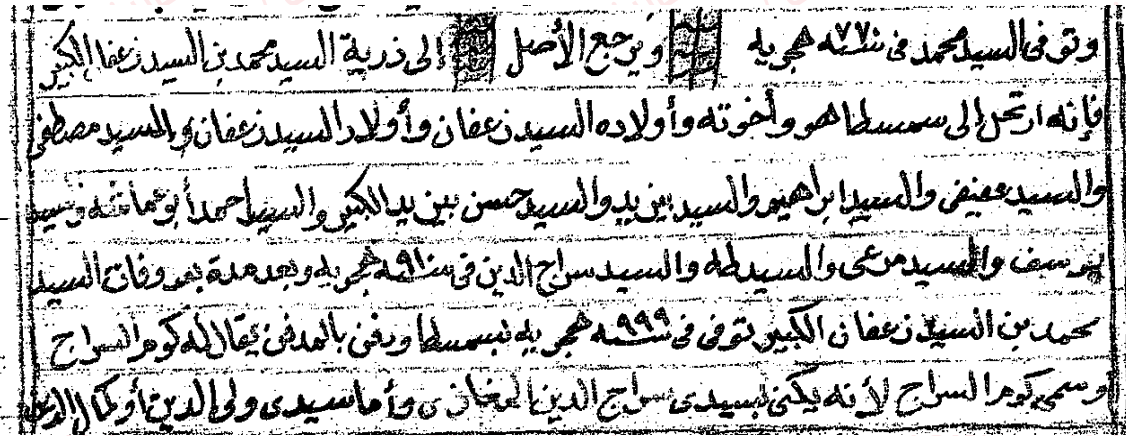 وتوفى السيد محمد فى سنة ٨٧٧ هجريه ويرجع الأصل إلى ذرية السيد محمد بن السيد زعفان الكبير
فإنه ارتحل إلى سمسطا هو وأخوته وأولاده السيد زعفان وأولاد السيد زعفان والسيد مصطفى
والسيد عفيفى والسيد ابراهيم والسيد بيزيد والسيد حسن بيزيد الكبير والسيد احمد أبو عماشه وسيد
يوسف والسيد مرعى والسيد طه والسيد سراج الدين فى سنة هجريه وبعد مدة بعد وفات السيد
محمد بن السيد زعفان الكبير توفى فى سنة ٩٩٩ هجريه بسمسطا ودفن بالمدفن يقال له كوم السراج
وسمى كوم السراج لأنه يكنى بسيدى سراج الدين المغازى وأما سيدى ولى الدين أو كمال الدين